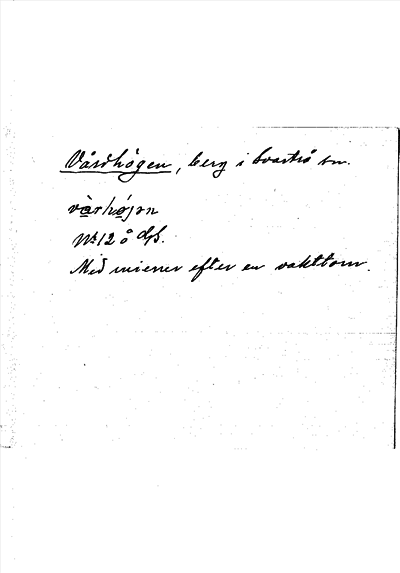 Vårdhögen, berg i Svartrå sn.
vàrhǿjən
Nr 12 å dfs.
Med minner efter en vakttorn.